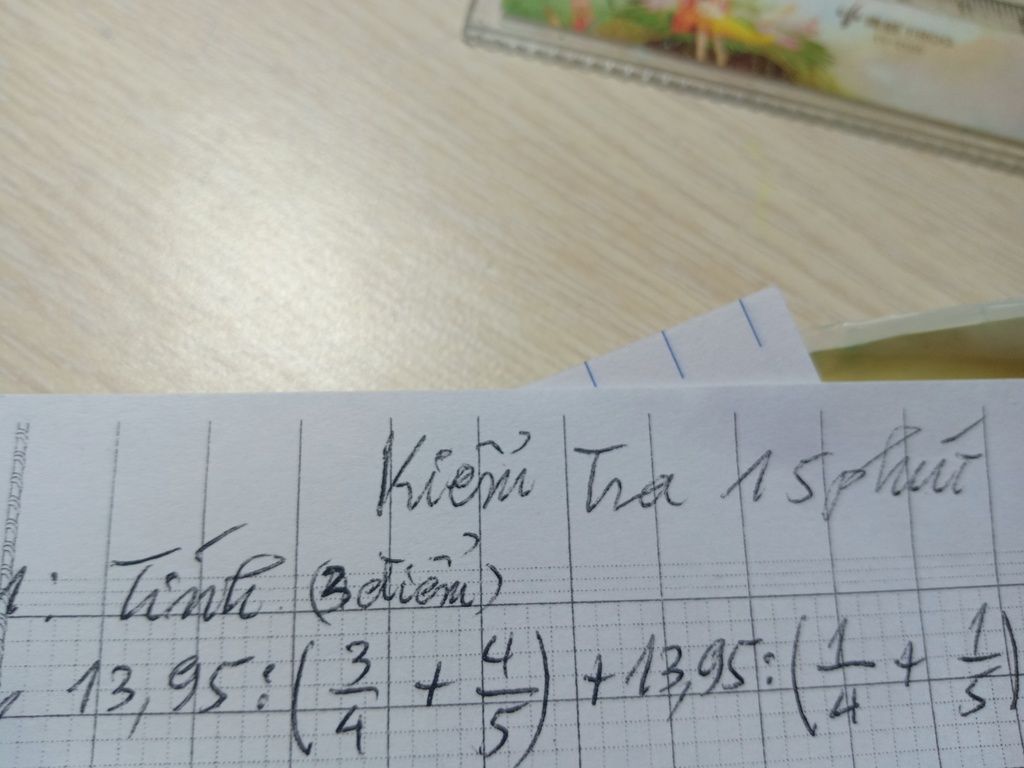 Kiểm tra 15 phút
1: Tính (3 điểm)
13,95 : (3/4 + 4/5) + 13,95 : (1/4 + 1/5)